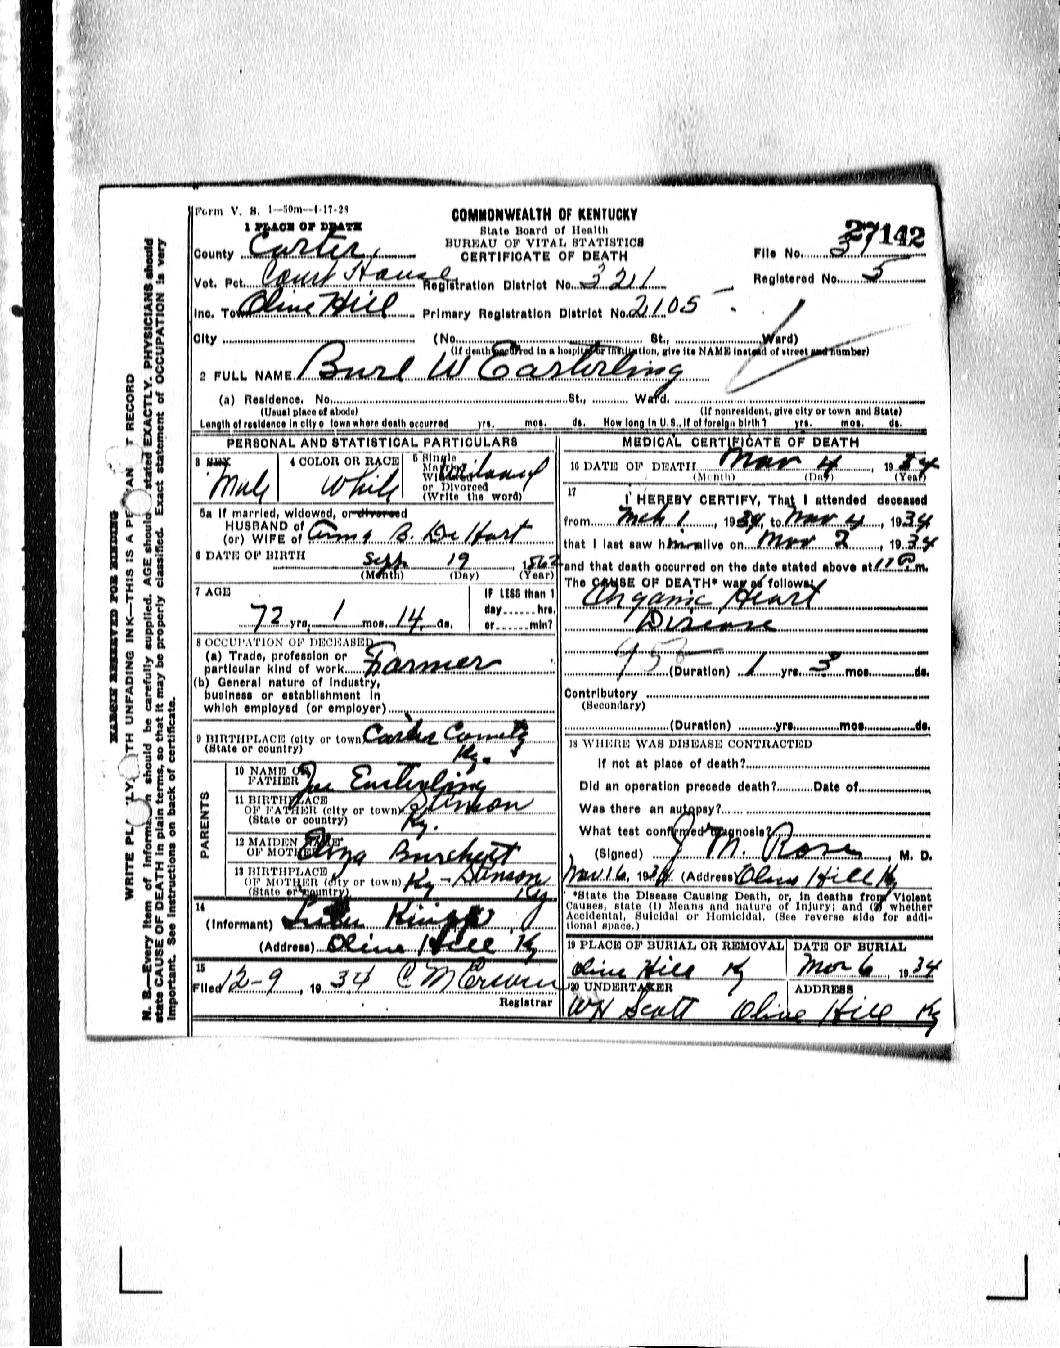 Form V. S. 1—50m—4-17-28
COMMONWEALTH OF KENTUCKY
State Board of Health
BUREAU OF VITAL STATISTICS
CERTIFICATE OF DEATH
27142
File No.
Registered No. 5
1 PLACE OF DEATH
County Carter
Vot. Pct. Court House Registration District No. 3211
Inc. Town Olive Hill Primary Registration District No. 2105
City (No. St., Ward)
(If death occurred in a hospital or institution, give its NAME instead of street and number)
2 FULL NAME Burl W Easterling
(a) Residence. No. St., Ward.
(Usual place of abode) (If nonresident, give city or town and State)
Length of residence in city or town where death occurred yrs. mos. ds. How long in U.S., if of foreign birth? yrs. mos. ds.
PERSONAL AND STATISTICAL PARTICULARS
3 SEX Male
4 COLOR OR RACE White
5 Single
Married
Widowed
or Divorced
(Write the word)
5a If married, widowed, or divorced
HUSBAND of
(or) WIFE of B. DeHart
6 DATE OF BIRTH Sept 19, 1862
(Month) (Day) (Year)
7 AGE
72 yrs. 1 mos. 14 ds.
IF LESS than 1
day hrs.
or min?
8 OCCUPATION OF DECEASED
(a) Trade, profession or
particular kind of work Farmer
(b) General nature of industry,
business or establishment in
which employed (or employer)
9 BIRTHPLACE (city or town) Carter County
(State or country) Ky.
PARENTS
10 NAME OF
FATHER Easterling
11 BIRTHPLACE
OF FATHER (city or town) Stinson
(State or country) Ky.
12 MAIDEN NAME
OF MOTHER Burchett
13 BIRTHPLACE
OF MOTHER (city or town) Ky - Stinson
(State or country) Ky
14
(Informant)
(Address) Olive Hill Ky
15
Filed 12-9, 1934 C M
Registrar
MEDICAL CERTIFICATE OF DEATH
16 DATE OF DEATH Nov 4, 1934
(Month) (Day) (Year)
17
I HEREBY CERTIFY, That I attended deceased
from Mch 1, 1934, to Nov 4, 1934
that I last saw him alive on Nov 2, 1934
and that death occurred on the date stated above at 11 P.m.
The CAUSE OF DEATH* was as follows:
Organic Heart
Disease
(Duration) 1 yrs. 3 mos. ds.
Contributory
(Secondary)
(Duration) yrs. mos. ds.
18 WHERE WAS DISEASE CONTRACTED
If not at place of death?
Did an operation precede death? Date of
Was there an autopsy?
What test confirmed diagnosis?
(Signed) J M. Rose, M. D.
Nov 16, 1934 (Address) Olive Hill Ky
*State the Disease Causing Death, or, in deaths from Violent
Causes, state (1) Means and nature of Injury; and (2) whether
Accidental, Suicidal or Homicidal. (See reverse side for addi-
tional space.)
19 PLACE OF BURIAL OR REMOVAL
Olive Hill Ky
DATE OF BURIAL
Nov 6 1934
20 UNDERTAKER
WH Scott
ADDRESS
Olive Hill Ky
MARGIN RESERVED FOR BINDING
WRITE PL LY, TH UNFADING INK—THIS IS A PE AN T RECORD
N. B.—Every item of information should be carefully supplied. AGE should stated EXACTLY. PHYSICIANS should
state CAUSE OF DEATH in plain terms, so that it may be properly classified. Exact statement of OCCUPATION is very
important. See instructions on back of certificate.